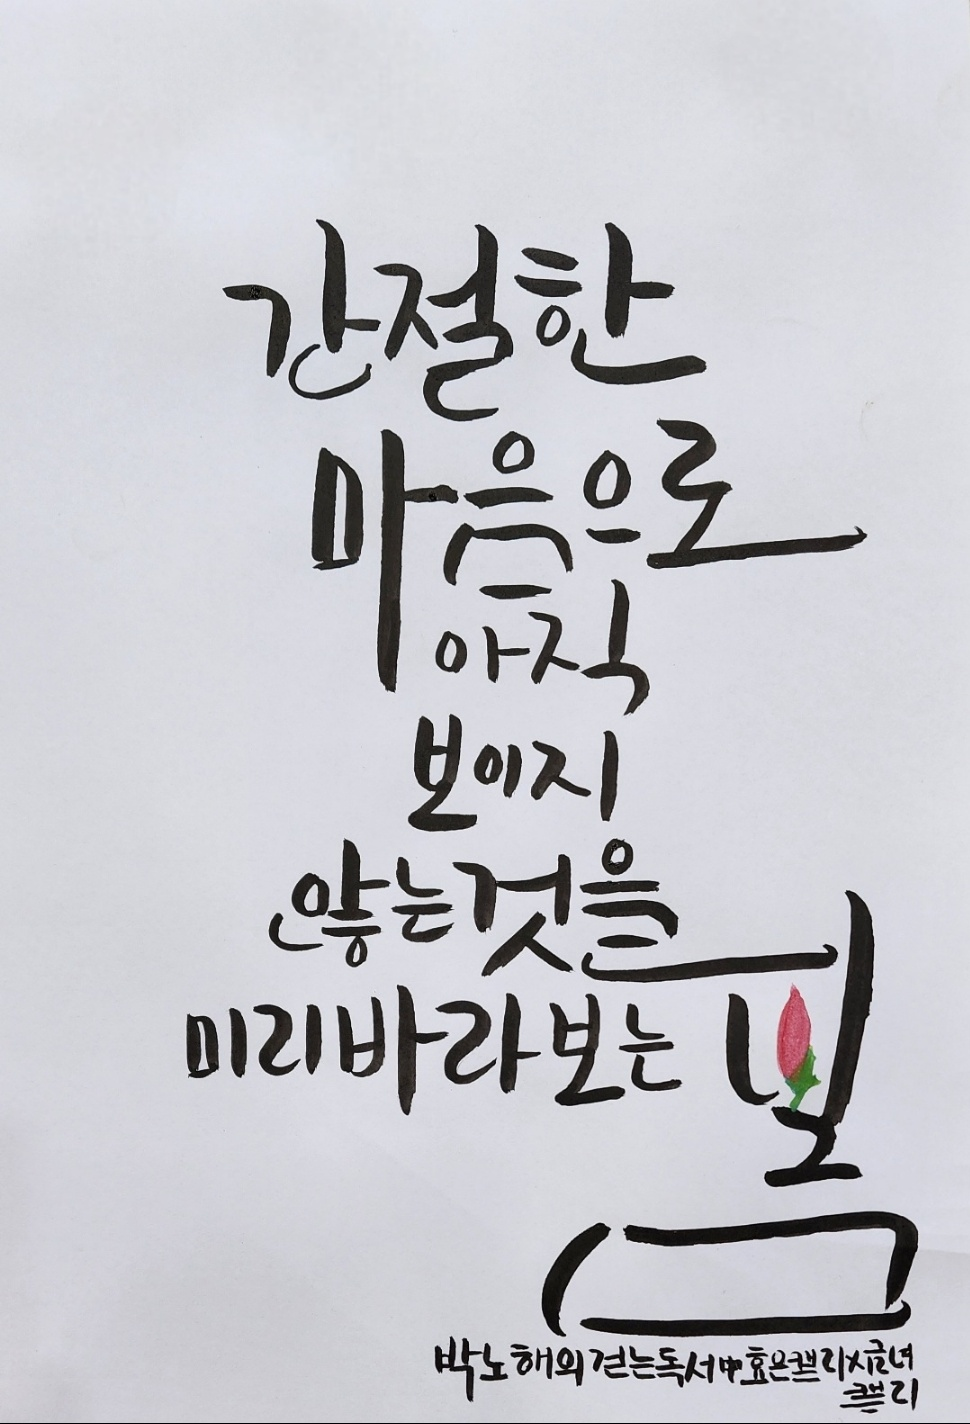 간절한
마음으로
아직
보이지
않는것을
미리바라보는 봄
박노해의 걷는독서中효은캘리x금녀
캘리